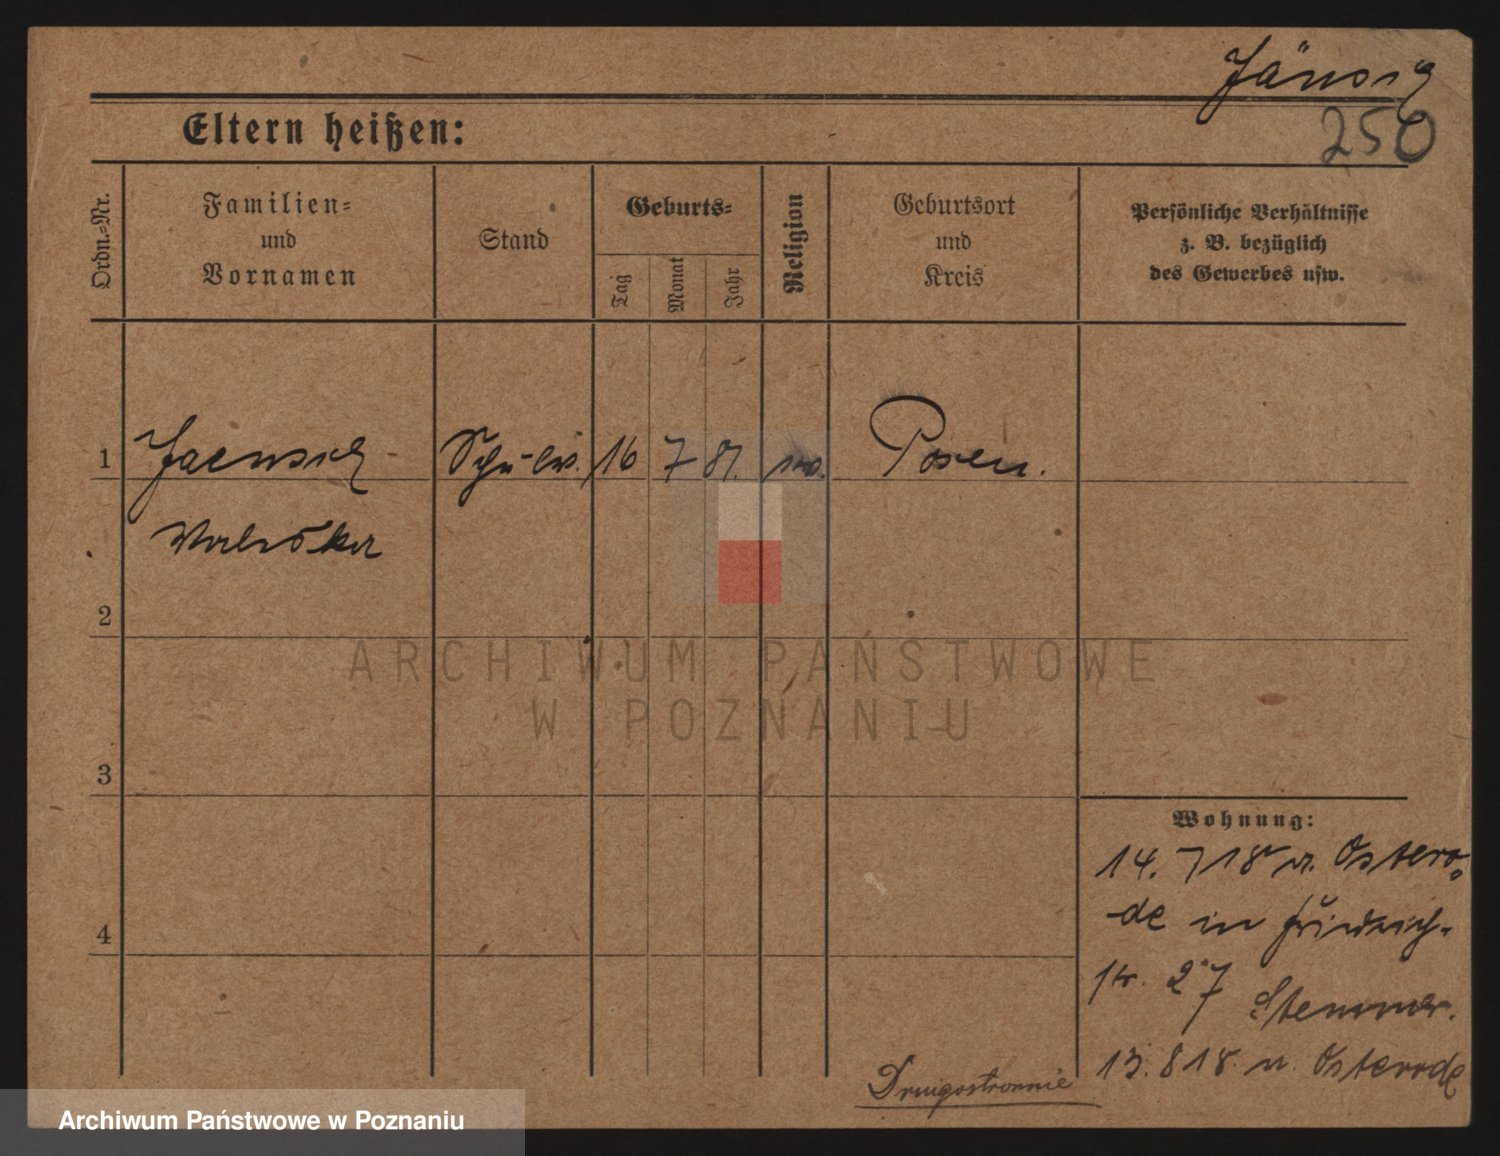 Jänsch
250
Eltern heißen:
Ordn.-Nr.
Familien-
und
Vornamen
Stand
Geburts-
Tag
Monat
Jahr
Religion
Geburtsort
und
Kreis
Persönliche Verhältnisse
z. B. bezüglich
des Gewerbes usw.
1
Jaensch
16
7
81.
Posen.
Waleska
2
ARCHIWUM PAŃSTWOWE
W POZNANIU
3
Wohnung:
14. 7 18 n. Ostero-
4
de in Friedrich-
str. 27
Stemmer.
13. 8 18. n. Osterode
Drugostronnie
Archiwum Państwowe w Poznaniu